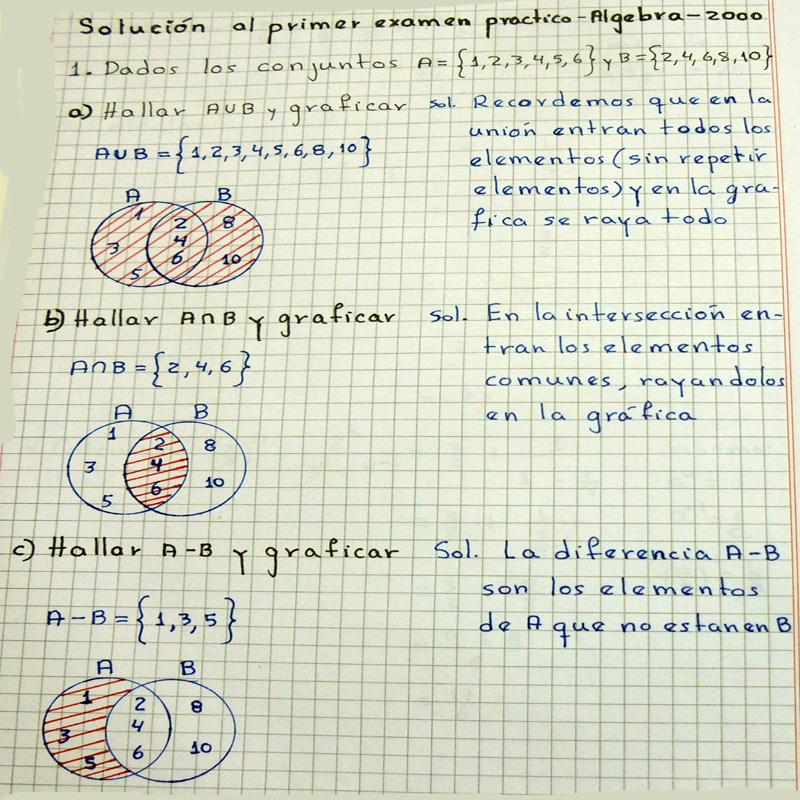 Solución al primer examen practico - Algebra - 2000
1. Dados los conjuntos A = {1,2,3,4,5,6} y B = {2,4,6,8,10}
a) Hallar A∪B y graficar
A∪B = {1,2,3,4,5,6,8,10}
sol. Recordemos que en la
unión entran todos los
elementos (sin repetir
elementos) y en la gra-
fica se raya todo
A B
1
2 8
3 4
6 10
5
b) Hallar A∩B y graficar
A∩B = {2,4,6}
Sol. En la intersección en-
tran los elementos
comunes, rayandolos
en la gráfica
A B
1
2 8
3 4
6 10
5
c) Hallar A-B y graficar
A-B = {1,3,5}
Sol. La diferencia A-B
son los elementos
de A que no estan en B
A B
1 2 8
3 4
6 10
5